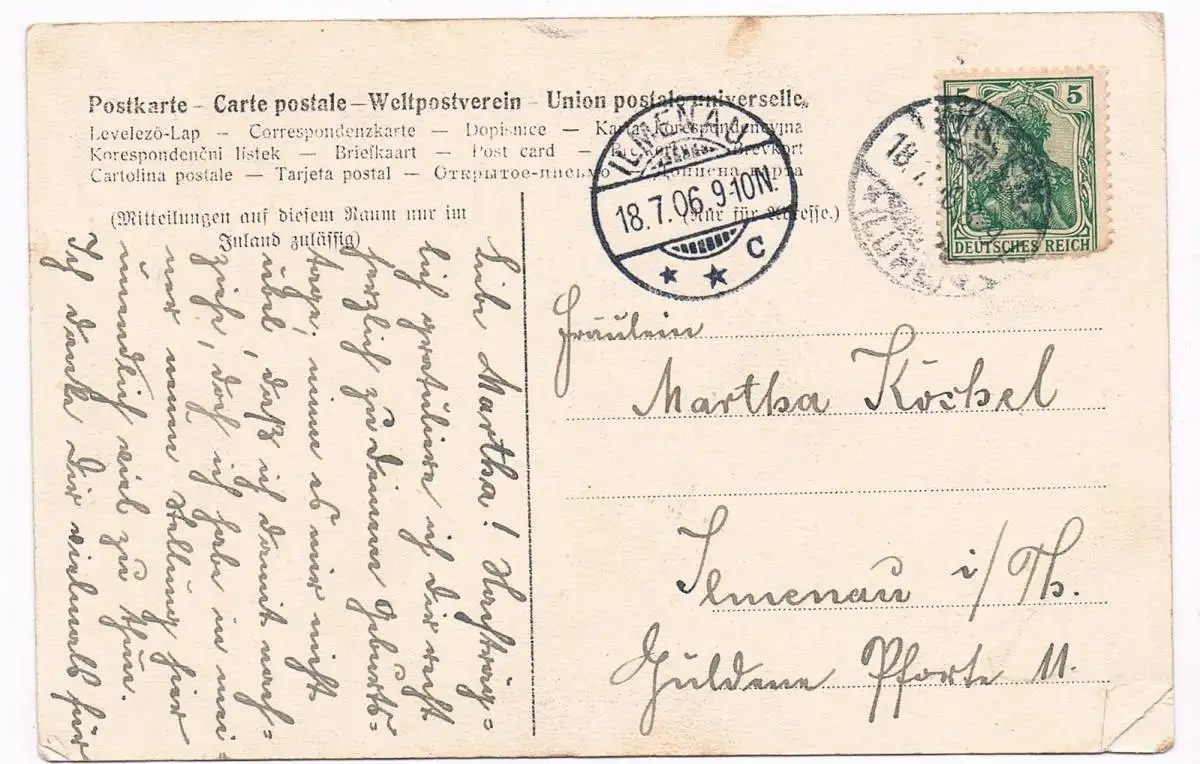 Postkarte – Carte postale – Weltpostverein – Union postale universelle.
Levelező-Lap — Correspondenzkarte — Dopisnice — Karta korespondencyjna
Korespondenční lístek — Briefkaart — Post card — Brevkort
Cartolina postale — Tarjeta postal — Открытое-письмо — Дописна карта
(Mitteilungen auf diesem Raum nur im
Inland zulässig)
(Nur für Adresse.)
ILMENAU
18.7.06. 9-10N.
* * C
5 5
DEUTSCHES REICH
18.7.
Liebe Martha! Nachträg=
lich gratuliere ich Dir recht
herzlich zu Deinem Geburts=
tage; nimm es mir nicht
übel, daß ich damit nach=
ziehe, doch ich habe in mei
ner neuen Stellung hier
unendlich viel zu thun.
Ich danke Dir vielmals für
Fräulein
Martha Köchel
Ilmenau i/Th.
Güldene Pforte 11.